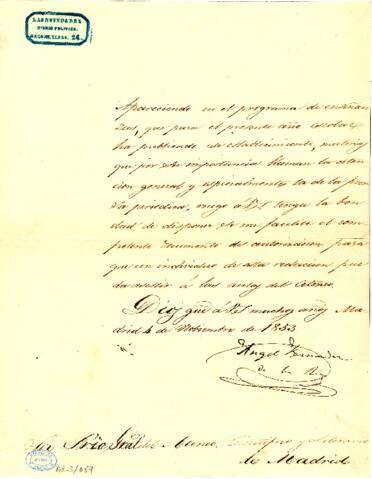 LAS NOVEDADES
DIARIO POLITICO,
24.
Apareciendo en el programa de enseñan
zas, que para el presente año escolar
ha publicado ese establecimiento, materias
que por su importancia llaman la aten
cion general y especialmente la de la pren
sa periodica, ruego a V.S. tenga la bon
dad de disponer se me facilite el com
petente documento de autorizacion para
que un individuo de esta redaccion pue
da asistir á las aulas del Ateneo.
Dios gue a V.S. muchos años Ma
drid 4 de Noviembre de 1853
Angel Fernandez
de los Rios
Sor Srio Gral del Ateneo Cientifico y Literario
de Madrid